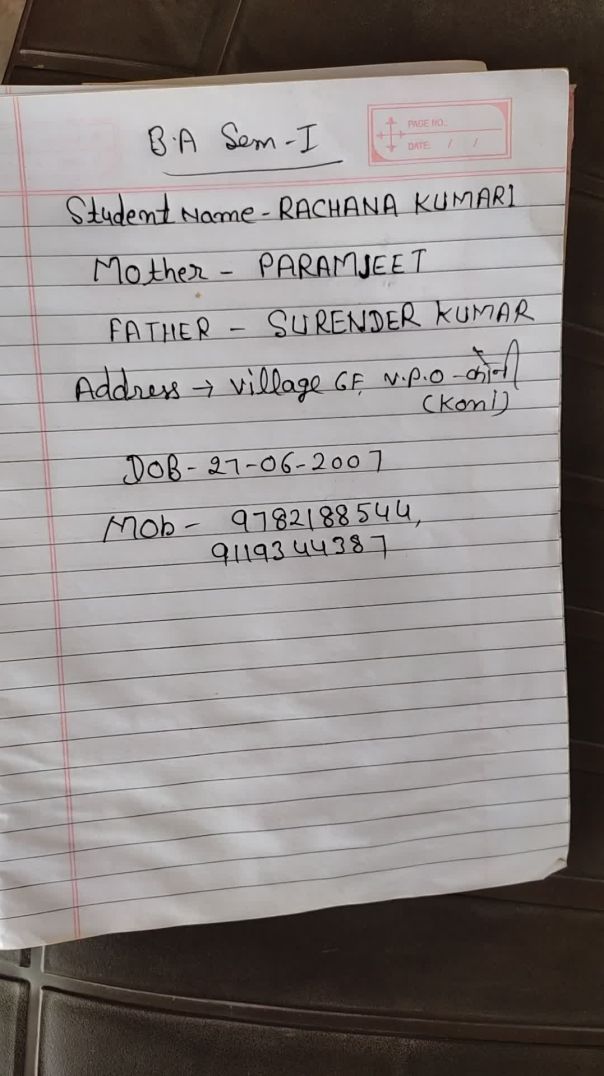 B.A Sem-I
PAGE NO.:
DATE: / /
Student Name - RACHANA KUMARI
Mother - PARAMJEET
FATHER - SURENDER KUMAR
Address → village GF, V.P.O - कोनी
(Koni)
DOB - 27-06-2007
Mob - 9782188544,
9119344387